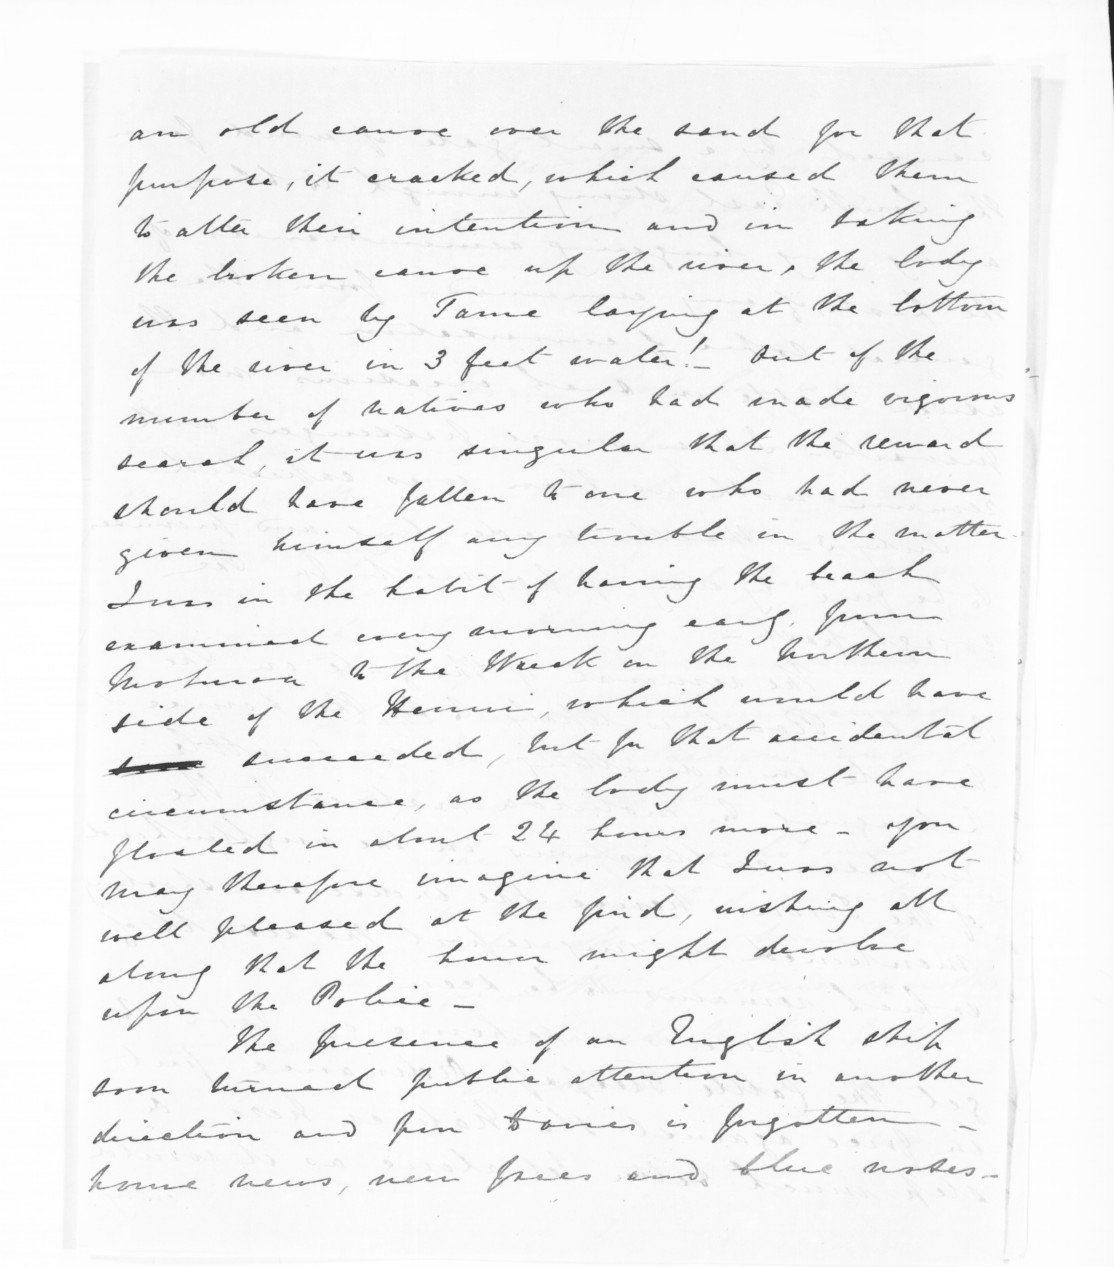 an old canoe over the sand for that
purpose, it cracked, which caused them
to alter their intention and in taking
the broken canoe up the river, the body
was seen by Tame laying at the bottom
of the river in 3 feet water! - Out of the
number of natives who had made vigorous
search, it was singular that the reward
should have fallen to one who had never
given himself any trouble in the matter.
I was in the habit of having the beach
examined every morning early, from
Motueka to the Wreck on the Northern
side of the Henui, which would have
succeeded, but for that accidental
circumstance, as the body must have
floated in about 24 hours more - You
may therefore imagine that I was not
well pleased at the find, wishing all
along that the honor might devolve
upon the Police -
The presence of an English ship
soon turned public attention in another
direction and poor Davies is forgotten -
home news, new faces and blue noses -